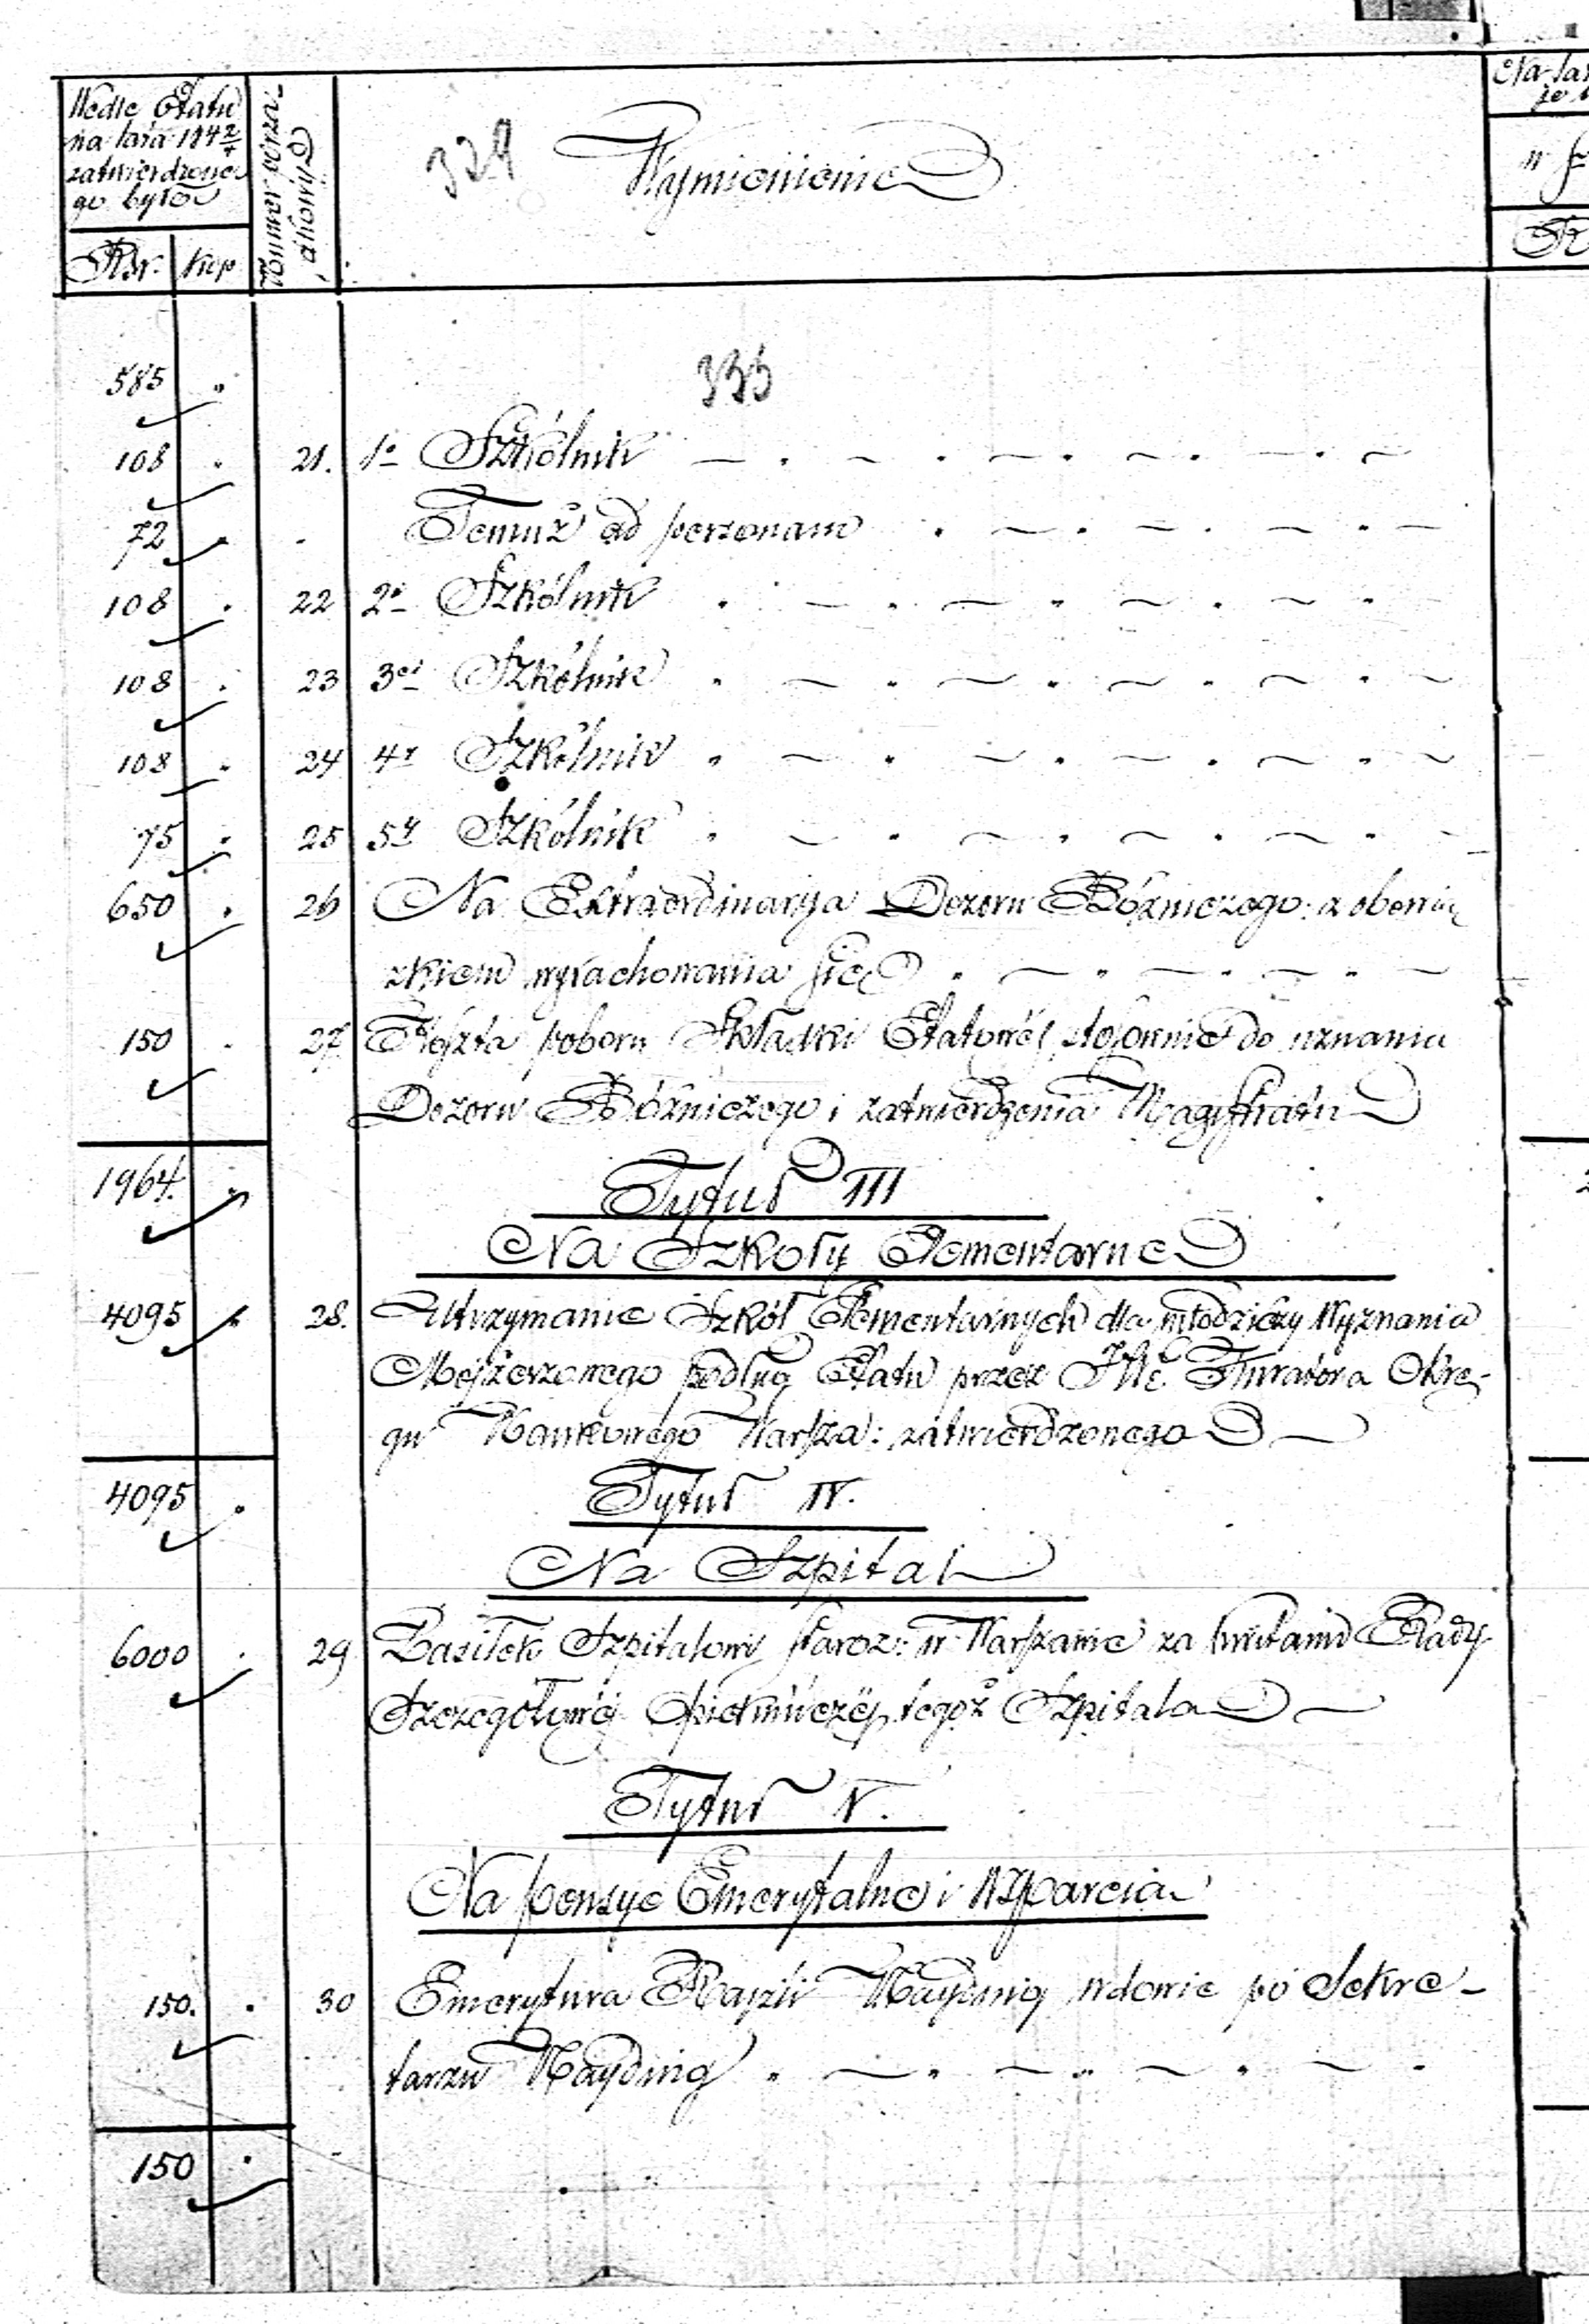 Wedle Etatu
na lata 184 2/4
zatwierdzone
go było
Rsr. kop
Nummer porzą-
dkowy
329 Wymienienie
Na lat
w
R
335
585 "
108 . 21. 1o Szkólnik
72 . . Temuż ad personam
108 . 22 2i Szkólnik
108 . 23 3ci Szkólnik
108 . 24 4y Szkólnik
75 . 25 5y Szkólnik
650 . 26 Na Extraordinaryja Dozoru Bóżniczego z obowią
zkiem wyrachowania się
150 . 27 Koszta poboru Składki Etatowéj stósownie do uznania
Dozoru Bóżniczego i zatwierdzenia Magistratu
1964. .
Tytuł III
Na Szkoły Elementarne
4095 . 28. Utrzymanie Szkół Elementarnych dla młodzieży Wyznania
Mojżeszowego podług Etatu przez JW. Kuratora Okrę-
gu Naukowego Warsza: zatwierdzonego
4095 .
Tytuł IV.
Na Szpital
6000 . 29 Zasiłek Szpitalowi Staroz: w Warszawie za kwitami Rady
Szczegółowéj Opiekuńczéj tegoż Szpitala
Tytuł V.
Na pensye Emerytalne i Wsparcia
150. . 30 Emerytura Rajzli Nayding wdowie po Sekre-
tarzu Nayding
150 .